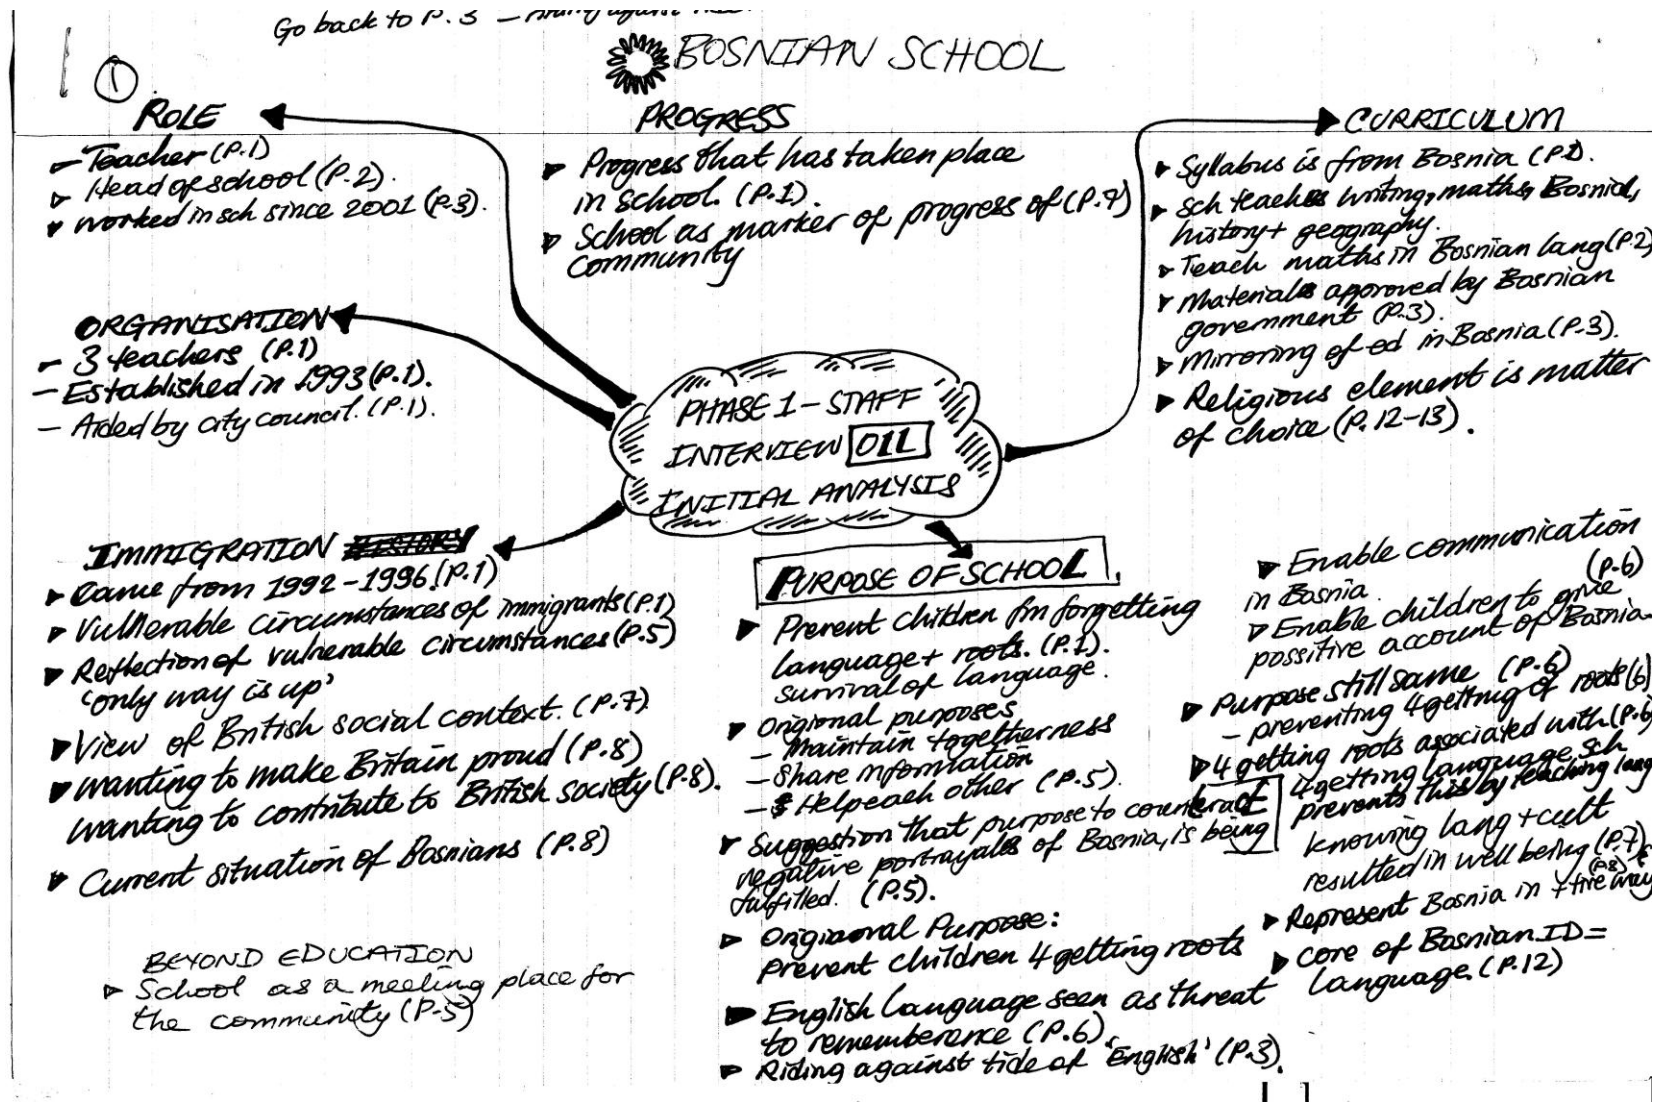 Go back to P.3 – riding against
BOSNIAN SCHOOL
1
ROLE
– Teacher (P.1)
Head of school (P.2).
worked in sch since 2001 (P.3).
PROGRESS
Progress that has taken place
in school. (P.1).
School as marker of progress of (P.7)
community
CURRICULUM
Syllabus is from Bosnia (P.1).
Sch teaches writing, maths, Bosnia,
history + geography.
Teach maths in Bosnian lang (P.2)
Materials approved by Bosnian
government (P.3).
Mirroring of ed in Bosnia (P.3).
Religious element is matter
of choice (P.12–13).
ORGANISATION
– 3 teachers (P.1)
– Established in 1993 (P.1).
– Aided by city council. (P.1).
PHASE 1 – STAFF
INTERVIEW 011
INITIAL ANALYSIS
IMMIGRATION HISTORY
Came from 1992–1996! (P.1)
Vullerable circumstances of immigrants (P.1)
Reflection of vulnerable circumstances (P.5)
'only way is up'
View of British social context. (P.7)
wanting to make Britain proud (P.8)
wanting to contribute to British society (P.8).
Current situation of Bosnians (P.8)
BEYOND EDUCATION
School as a meeting place for
the community (P.5)
PURPOSE OF SCHOOL.
Prevent children fm forgetting
language + roots. (P.1).
survival of language.
Origional purposes
– Maintain togetherness
– Share information
– Help each other (P.5).
Suggestion that purpose to counteract
negative portrayals of Bosnia, is being
fulfilled. (P.5).
Origioonal Purpose:
prevent children 4getting roots
English language seen as threat
to rememberence (P.6).
Riding against tide of 'English' (P.3).
Enable communication
in Bosnia. (P.6)
Enable children to give
possitive account of Bosnia.
Purpose still same (P.6)
– preventing 4getting of roots (6)
4getting roots associated with (P.6)
4getting language, sch
prevents this by teaching lang
knowing lang + cult
resulted in well being (P.7)
(P.8)
Represent Bosnia in +tive way
core of Bosnian ID =
language. (P.12)